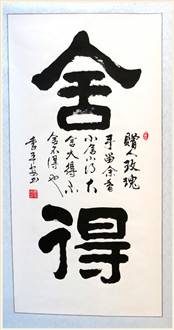 舍得
赠人玫瑰
手留余香
小舍小得大
舍大得不
舍不得也